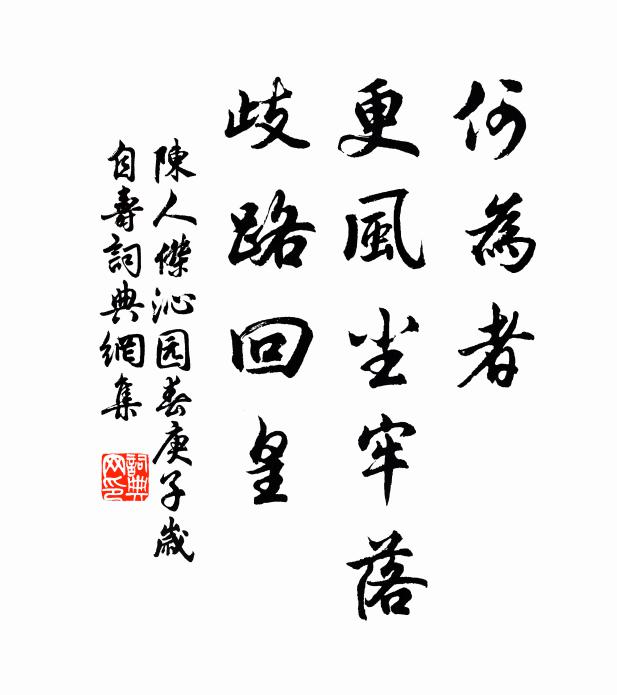 何為者
更風尘牢落
歧路回皇
陳人傑沁园春庚子歲
自壽詞典網集
詞典
网印